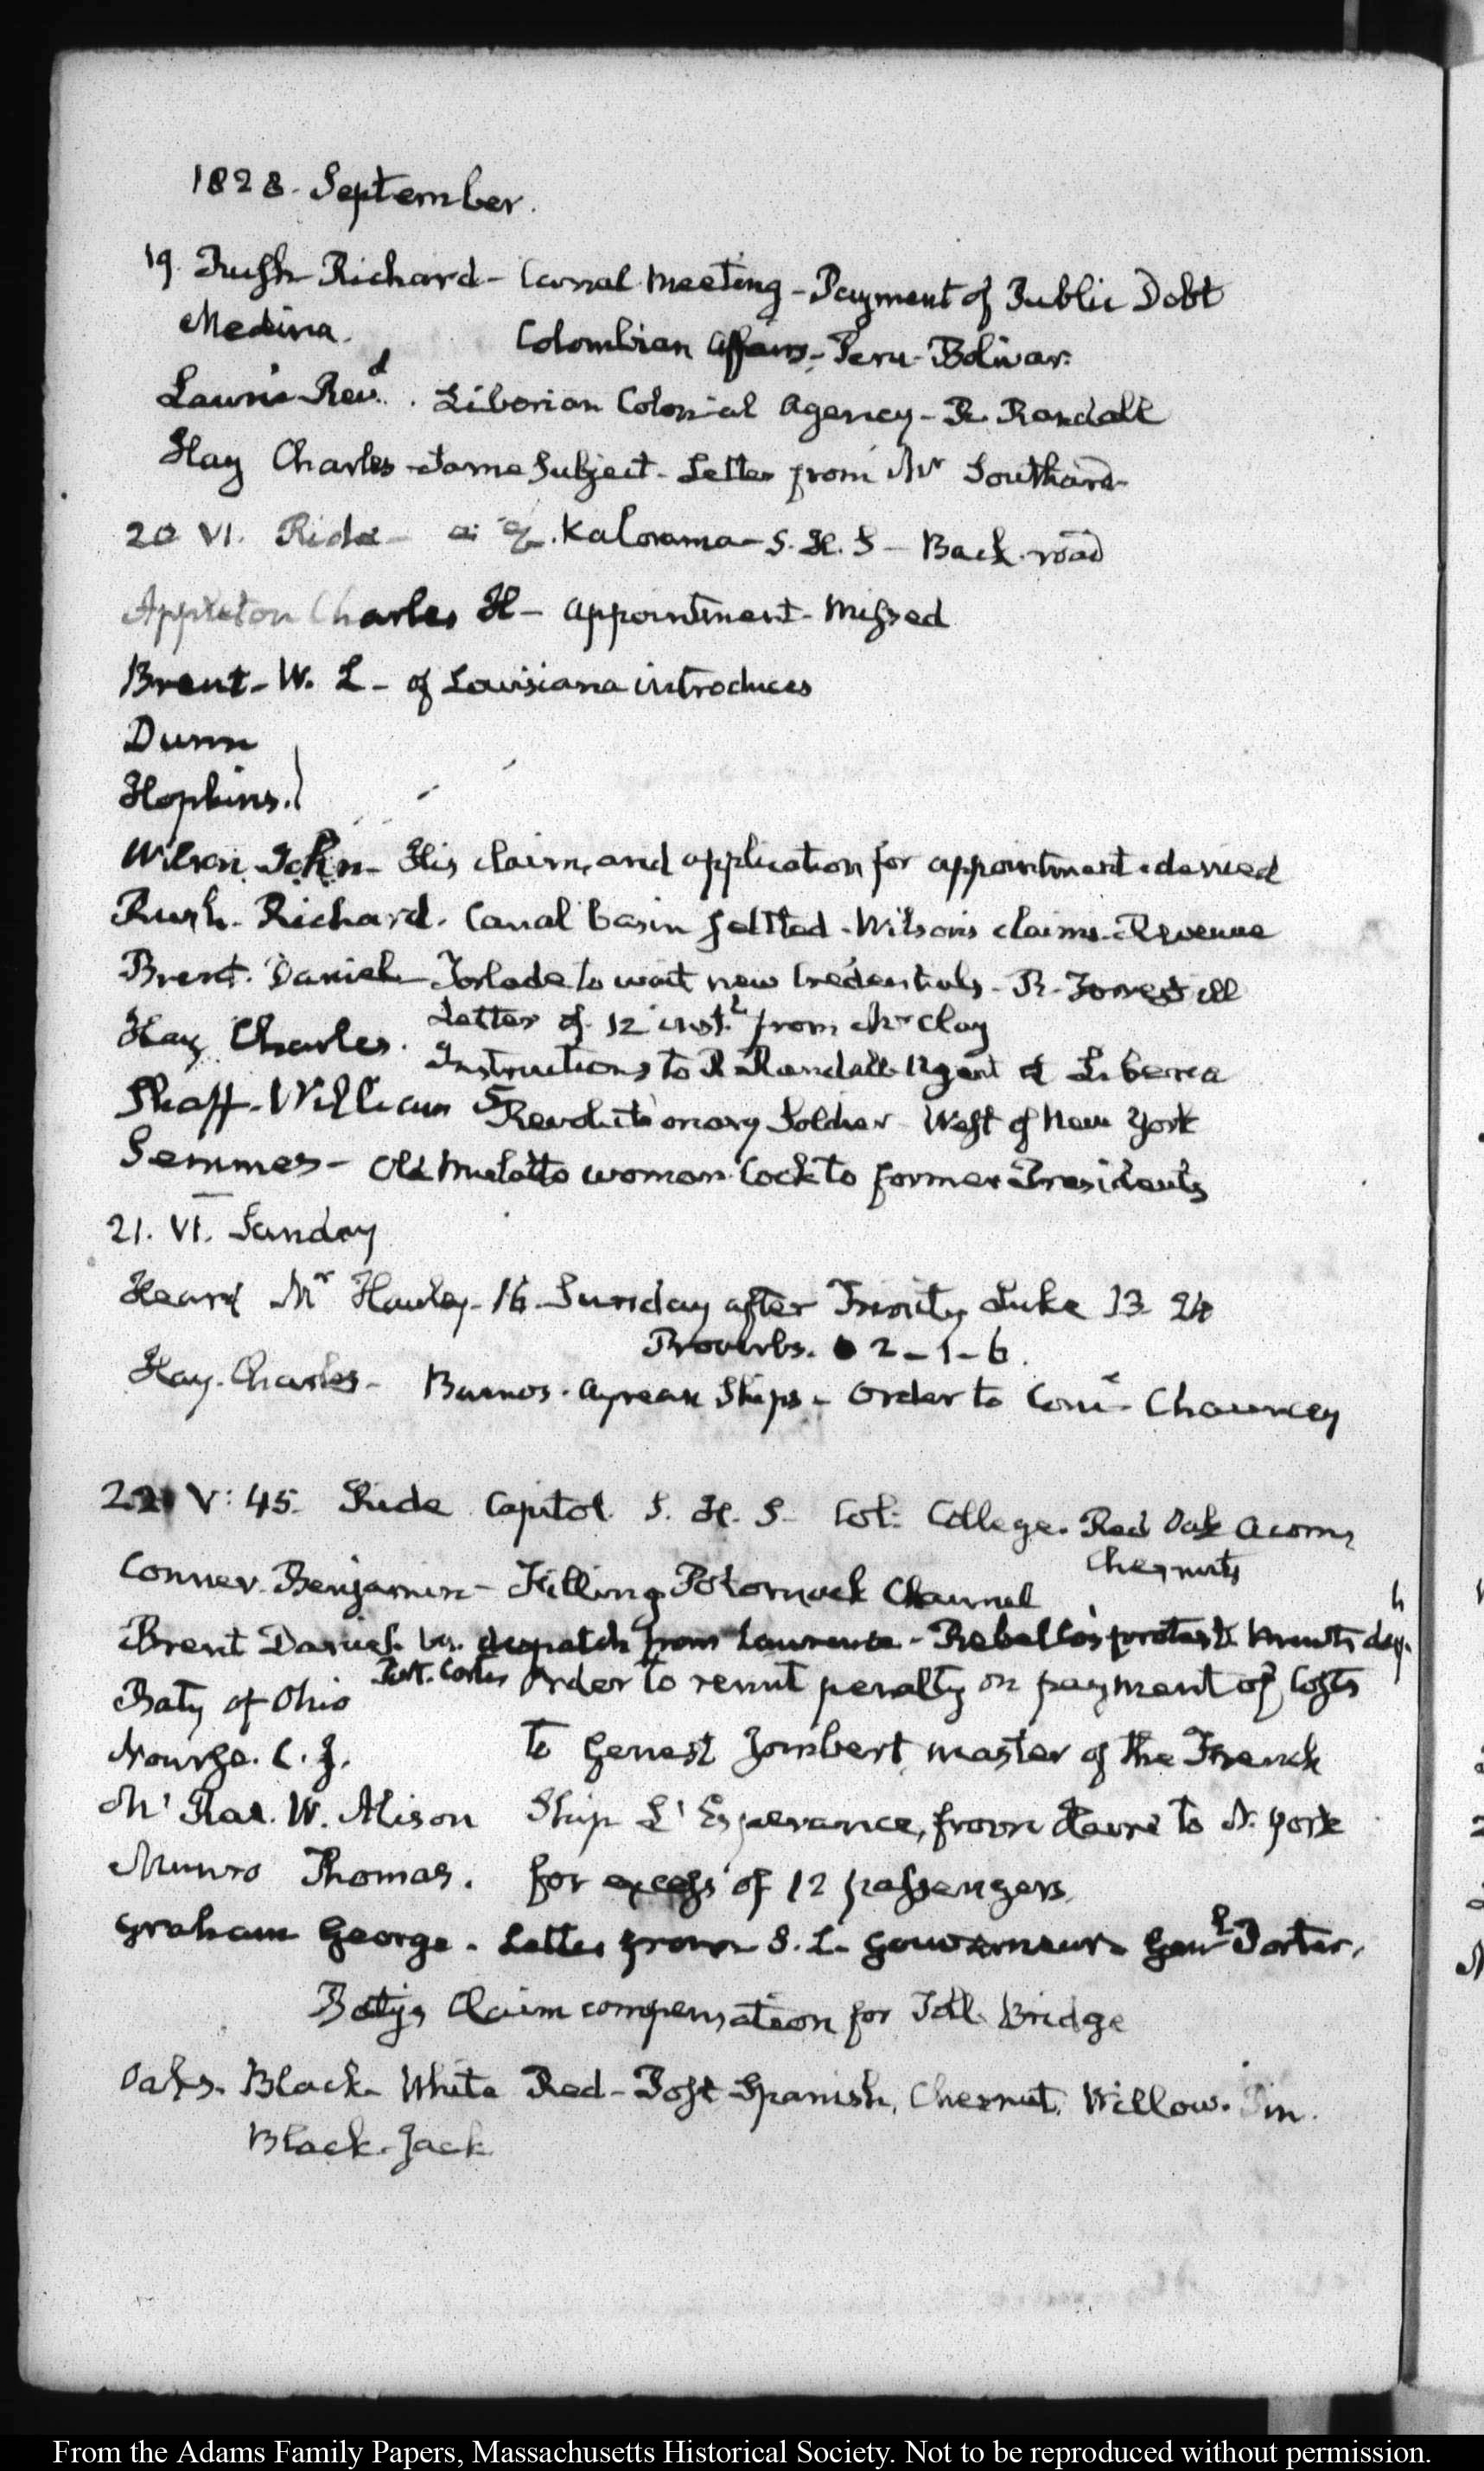 1828. September.
19. Rush Richard - Canal Meeting - Payment of Public Debt
Medina. Colombian Affairs - Peru - Bolivar.
Laurie Revd. Liberian Colonial Agency - R. Randall
Hay Charles - Same Subject - Letter from Mr Southard
20 VI. Ride - Kalorama - S. H. S - Back road
Appleton Charles H - appointment - Missed
Brent - W. L - of Louisiana introduces
Dunn
Hopkins.
Wilson John - His claim, and application for appointment - denied
Rush. Richard. Canal basin settled - Wilson's claims - Revenue
Brent. Daniel to wait new Credentials - R. Forrest ill
Letter of 12 inst. from Mr Clay
Hay Charles. Instructions to R Randall Agent at Liberia
William Revolutionary Soldier - West of New York
Semmes - Old Mulatto woman Cook to former Presidents
21. VI. Sunday
Heard Mr Hawley - 16 Sunday after Trinity Luke 13 24
Proverbs. 2 - 1 - 6.
Hay. Charles - Buenos - Ayrean Ships - Order to Come Chauncey
22 V: 45. Ride Capitol. S. H. S - Col: College. Red Oak acorns
Chesnuts
Conner. Benjamin - Filling Potomack Channel
Brent Daniel. despatch from Laurence - Rebello's protest
Baty of Ohio Order to remit penalty on payment of Costs
Nourse. C. J. To Genest Jombert, master of the French
Mc Rae. W. Alison Ship L'Esperance, from Havre to N. York
Munro Thomas. for excess of 12 passengers
Graham George. Letter from S. L. Gouverneur. Genl Porter.
Baty's Claim compensation for Toll Bridge
Oaks. Black - White Red - Post Spanish, Chesnut, Willow. Pin.
Black - Jack
From the Adams Family Papers, Massachusetts Historical Society. Not to be reproduced without permission.